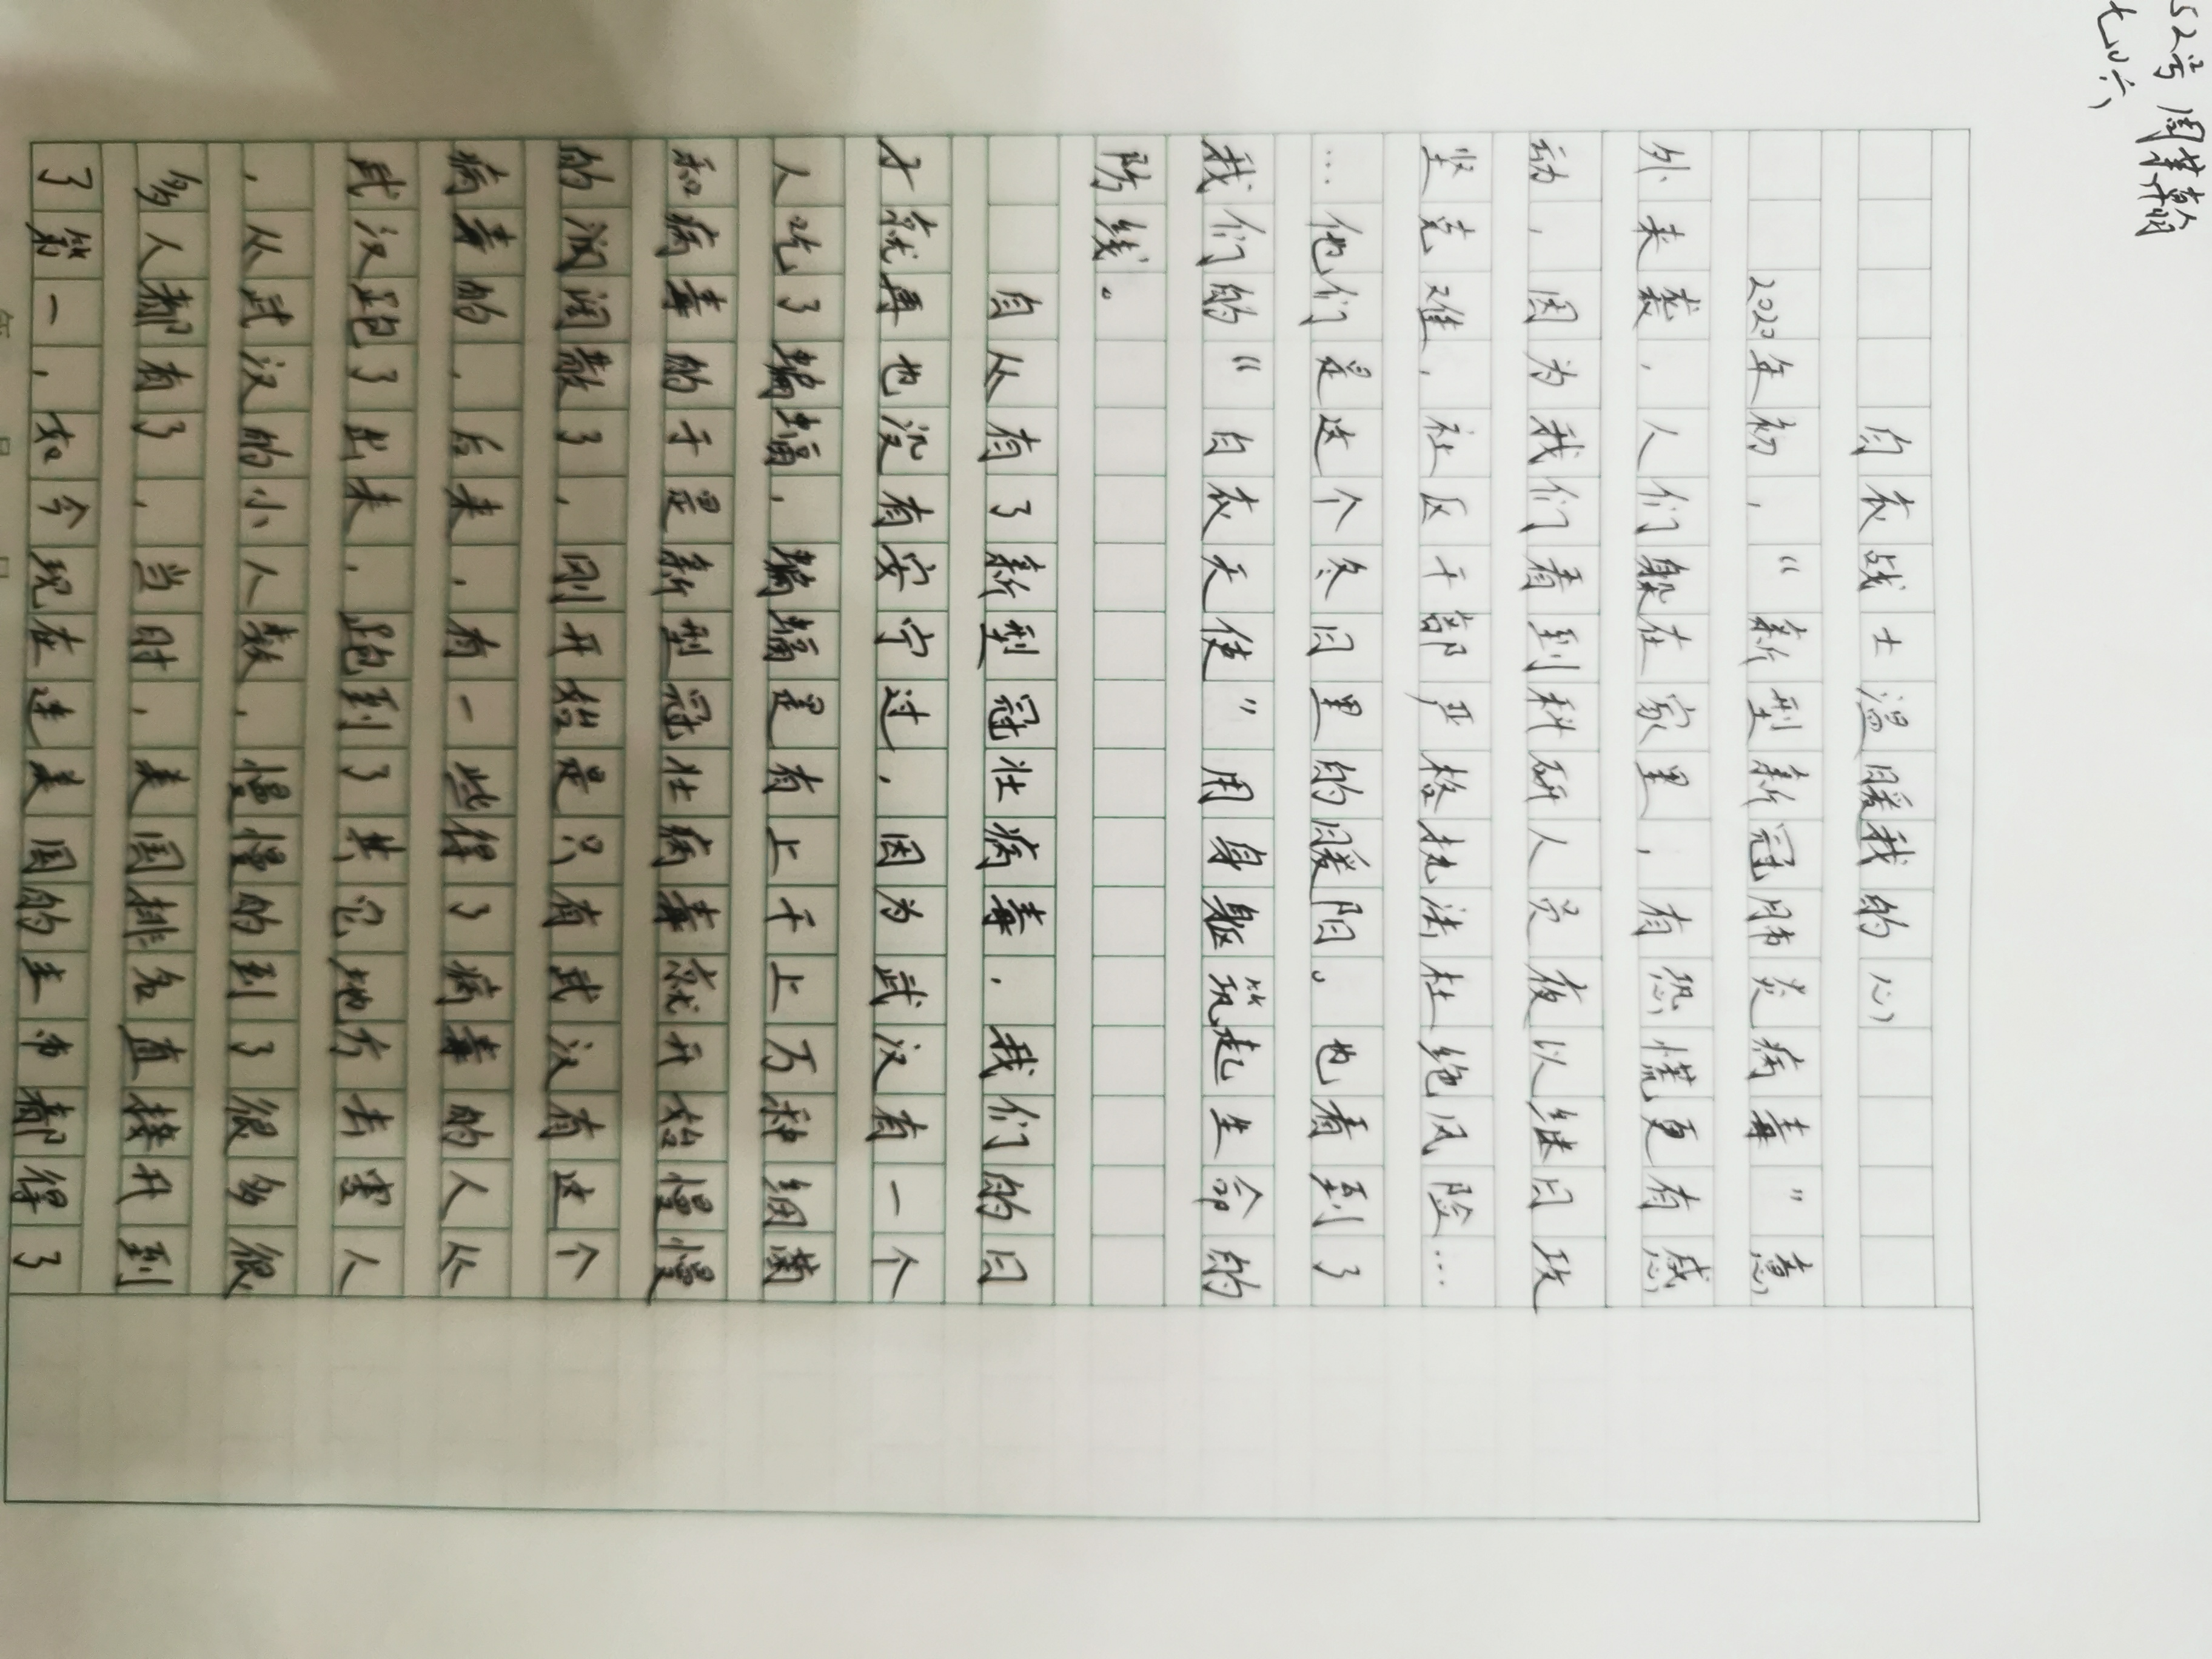 52号 周肄翰
七(16)
白衣战士温暖我的心
2020年初，“新型新冠肺炎病毒”意
外来袭，人们躲在家里，有恐慌更有感
动，因为我们看到科研人员夜以继日攻
坚克难，社区干部严格执法杜绝风险…
…他们是这个冬日里的暖阳。也看到了
我们的“白衣天使”用身躯筑起生命的
防线。
自从有了新型冠壮病毒，我们的日
才就再也没有安宁过，因为武汉有一个
人吃了蝙蝠，蝙蝠是有上千上万种细菌
和病毒的于是新型冠壮病毒就开始慢慢
的润润散了，刚开始是只有武汉有这个
病毒的，后来，有一些得了病毒的人从
武汉跑了出来，跑到了其它地方去害人
，从武汉的小人数，慢慢的到了很多很
多人都有了，当时，美国排名直接升到
了第一，如今现在连美国的主市都得了